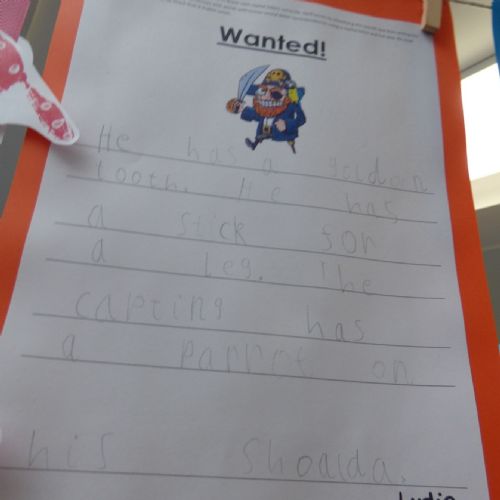 Wanted!
He has a goldan
tooth. He has
a stick for
a leg. The
capting has
a parrot on
his shoalda.